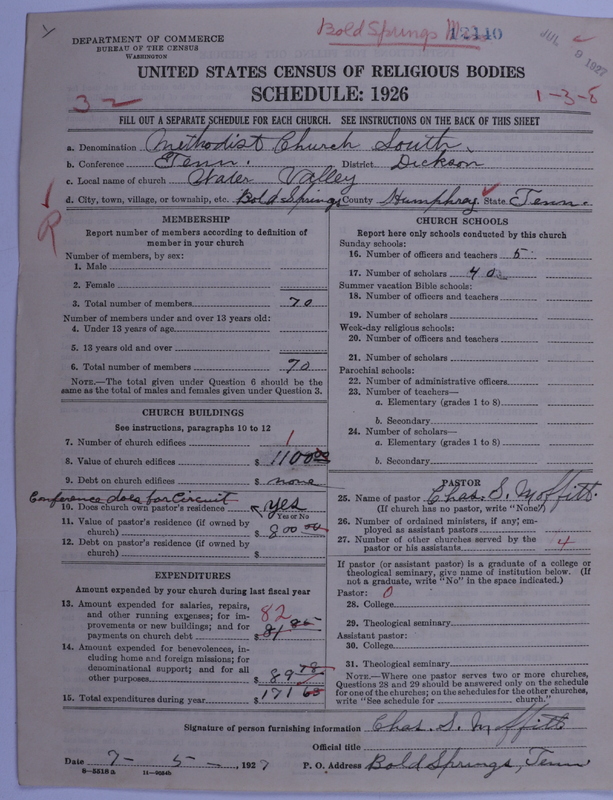 Bold Springs
12110
JUL 9 1927
DEPARTMENT OF COMMERCE
BUREAU OF THE CENSUS
WASHINGTON
UNITED STATES CENSUS OF RELIGIOUS BODIES
SCHEDULE: 1926
32
1-3-8
FILL OUT A SEPARATE SCHEDULE FOR EACH CHURCH. SEE INSTRUCTIONS ON THE BACK OF THIS SHEET
a. Denomination Methodist Church South
b. Conference Tenn. District Dickson
c. Local name of church Water Valley
d. City, town, village, or township, etc. Bold Springs County Humphray State Tenn.
R
MEMBERSHIP
Report number of members according to definition of
member in your church
Number of members, by sex:
1. Male
2. Female
3. Total number of members 70
Number of members under and over 13 years old:
4. Under 13 years of age
5. 13 years old and over
6. Total number of members 70
NOTE.—The total given under Question 6 should be the
same as the total of males and females given under Question 3.
CHURCH BUILDINGS
See instructions, paragraphs 10 to 12
7. Number of church edifices 1
8. Value of church edifices $ 1100 00
9. Debt on church edifices $ none
Conference does for Circuit
10. Does church own pastor's residence yes
Yes or No
11. Value of pastor's residence (if owned by
church) $ 800 00
12. Debt on pastor's residence (if owned by
church) $
EXPENDITURES
Amount expended by your church during last fiscal year
13. Amount expended for salaries, repairs,
and other running expenses; for im-
provements or new buildings; and for
payments on church debt $ 81 85
82
14. Amount expended for benevolences, in-
cluding home and foreign missions; for
denominational support; and for all
other purposes $ 89 78
15. Total expenditures during year $ 171 63
CHURCH SCHOOLS
Report here only schools conducted by this church
Sunday schools:
16. Number of officers and teachers 5
17. Number of scholars 40
Summer vacation Bible schools:
18. Number of officers and teachers
19. Number of scholars
Week-day religious schools:
20. Number of officers and teachers
21. Number of scholars
Parochial schools:
22. Number of administrative officers
23. Number of teachers—
a. Elementary (grades 1 to 8)
b. Secondary
24. Number of scholars—
a. Elementary (grades 1 to 8)
b. Secondary
PASTOR
25. Name of pastor Chas. S. Moffitt
(If church has no pastor, write "None")
26. Number of ordained ministers, if any; em-
ployed as assistant pastors
27. Number of other churches served by the
pastor or his assistants 4
If pastor (or assistant pastor) is a graduate of a college or
theological seminary, give name of institution below. (If
not a graduate, write "No" in the space indicated.)
Pastor: 0
28. College
29. Theological seminary
Assistant pastor:
30. College
31. Theological seminary
NOTE.—Where one pastor serves two or more churches,
Questions 28 and 29 should be answered only on the schedule
for one of the churches; on the schedules for the other churches,
write "See schedule for church."
Signature of person furnishing information Chas. S. Moffitt
Official title
Date 7-5-, 1927 P. O. Address Bold Springs, Tenn
8-5518a 11-9034b